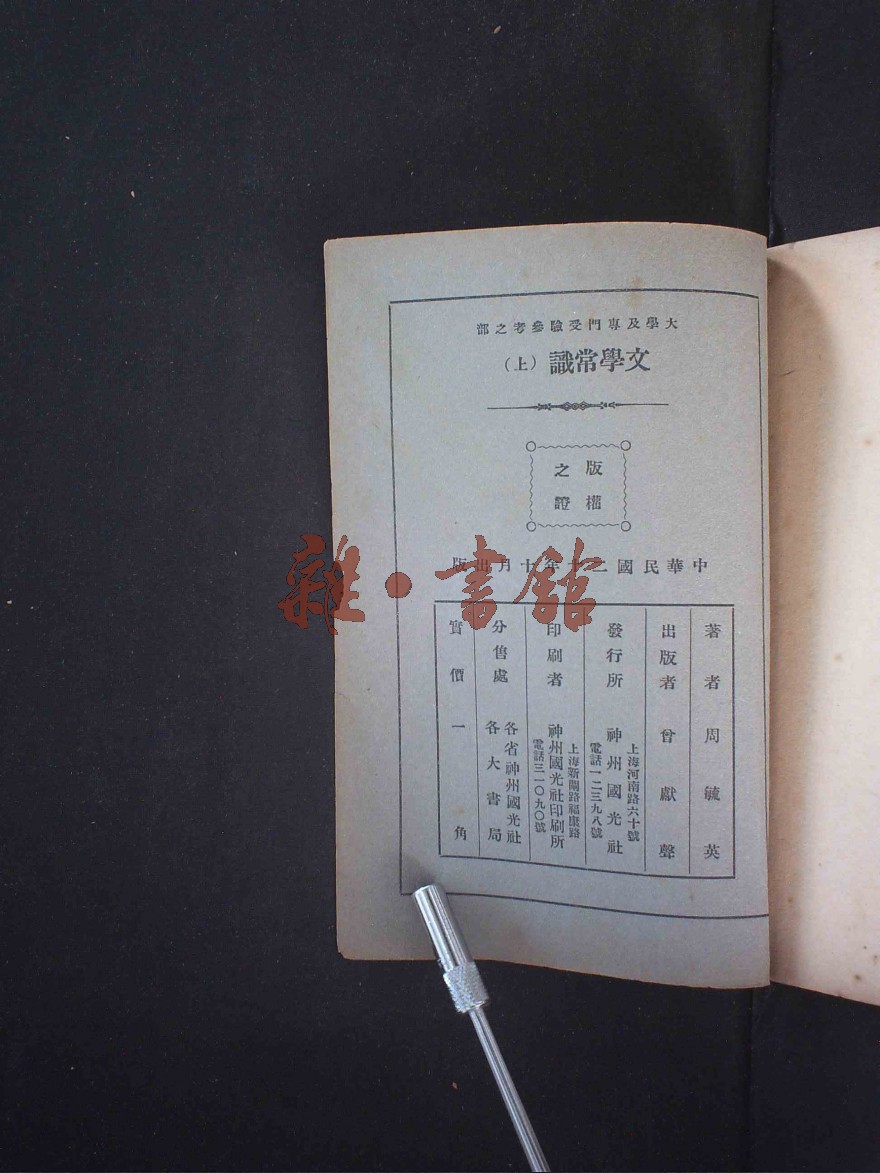 大學及專門受驗參考之部
文學常識（上）
版權
之證
中華民國二十年十月出版
著者 周毓英
出版者 曾獻聲
發行所
上海河南路六十號
神州國光社
電話一二三九八號
印刷者
上海新閘路福康路
神州國光社印刷所
電話三一〇九〇號
分售處
各省神州國光社
各大書局
實價一角
雜·書館